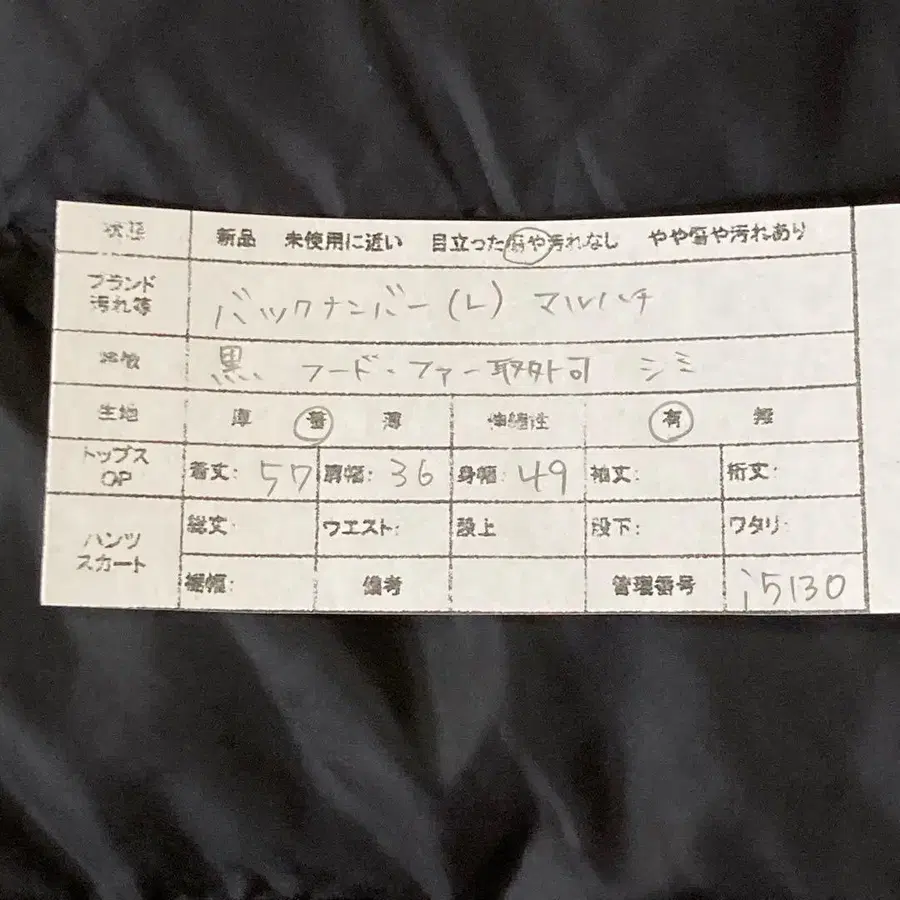 状態 新品 未使用に近い 目立った傷や汚れなし やや傷や汚れあり
ブランド
汚れ等 バックナンバー(L) マルハチ
黒 フード・ファー取外可 シミ
生地 厚 普 薄 伸縮性 有 無
トップス
OP 着丈: 57 肩幅: 36 身幅: 49 袖丈: 裄丈:
パンツ
スカート 総丈: ウエスト: 股上 股下: ワタリ:
裾幅: 備考 管理番号 i5130